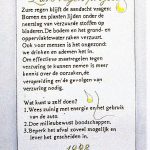 Zure regen
Zure regen blijft de aandacht vragen.
Bomen en planten lijden onder de
neerslag van verzuurde stoffen en
kinderen. De bodem en het grond- en
oppervlaktewater raken verzuurd.
Ook voor mensen is het ongezond:
we drinken en ademen het in.
Om effectieve maatregelen tegen
verzuring te kunnen nemen is meer
kennis over de oorzaken, de
verspreiding en de gevolgen van
verzuring nodig.
Wat kunt u zelf doen?
1. Wees zuinig met energie en het gebruik
van de auto.
2. Doe milieubewust boodschappen.
3. Beperk het afval zoveel mogelijk en
lever het gescheiden in.
1998